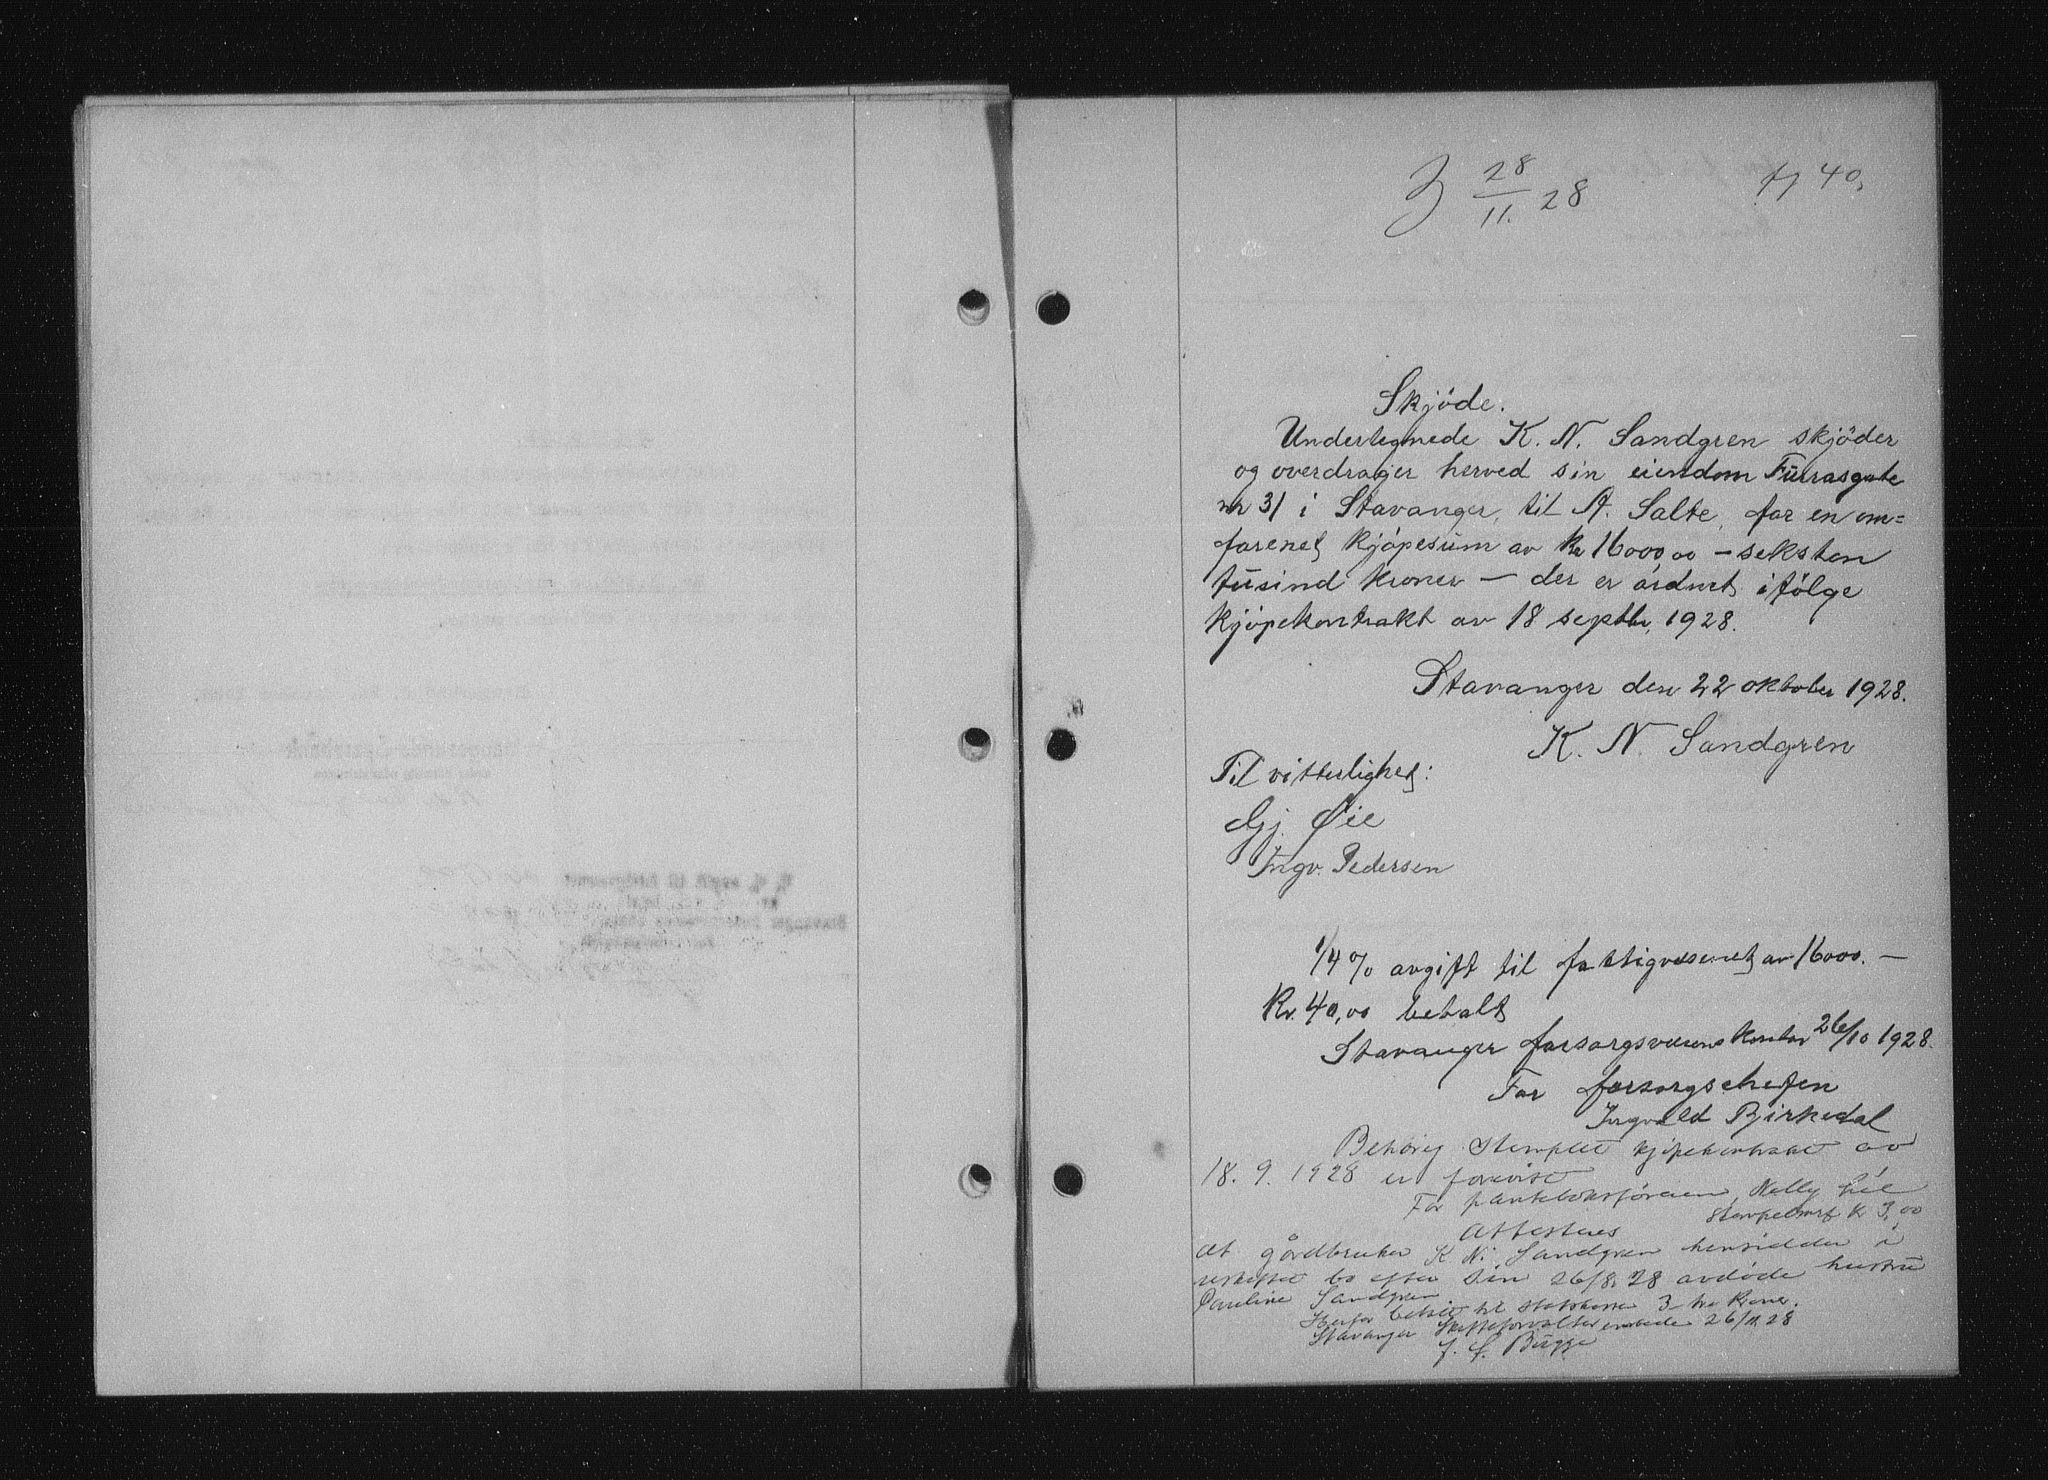 28/11. 28
40,
Skjöde.
Undertegnede K. N. Sandgren skjöder
og overdrager herved sin eiendom Furrasgate
nr 31 i Stavanger, til A. Salte, for en om=
forenet kjöpesum av kr 16000 00 – seksten
tusind kroner – der er ordnet ifölge
kjöpekontrakt av 18 septbr, 1928.
Stavanger den 22 oktober 1928.
K. N. Sandgren
Til vitterlighet:
Gj. Øie
Ingv. Pedersen
1/4 % avgift til fattigvesenet av 16000. –
Kr. 40,00 betalt
Stavanger forsorgsvesens kontor 26/10 1928.
For forsorgschefen
Ingvald Birkedal
Behörig stemplet kjöpekontrakt av
18. 9. 1928 er forevist
For pantebokföreren, Nelly
Stempelmrk kr 3,00
Attesteres
at gårdbruker K. N. Sandgren hensidder i
uskiftet bo efter sin 26/8 28 avdöde hustru
Pauline Sandgren
Herfor betalt til statskassen 3 – tre kroner.
Stavanger Skifteforvalterembede 26/11 28
Bugge